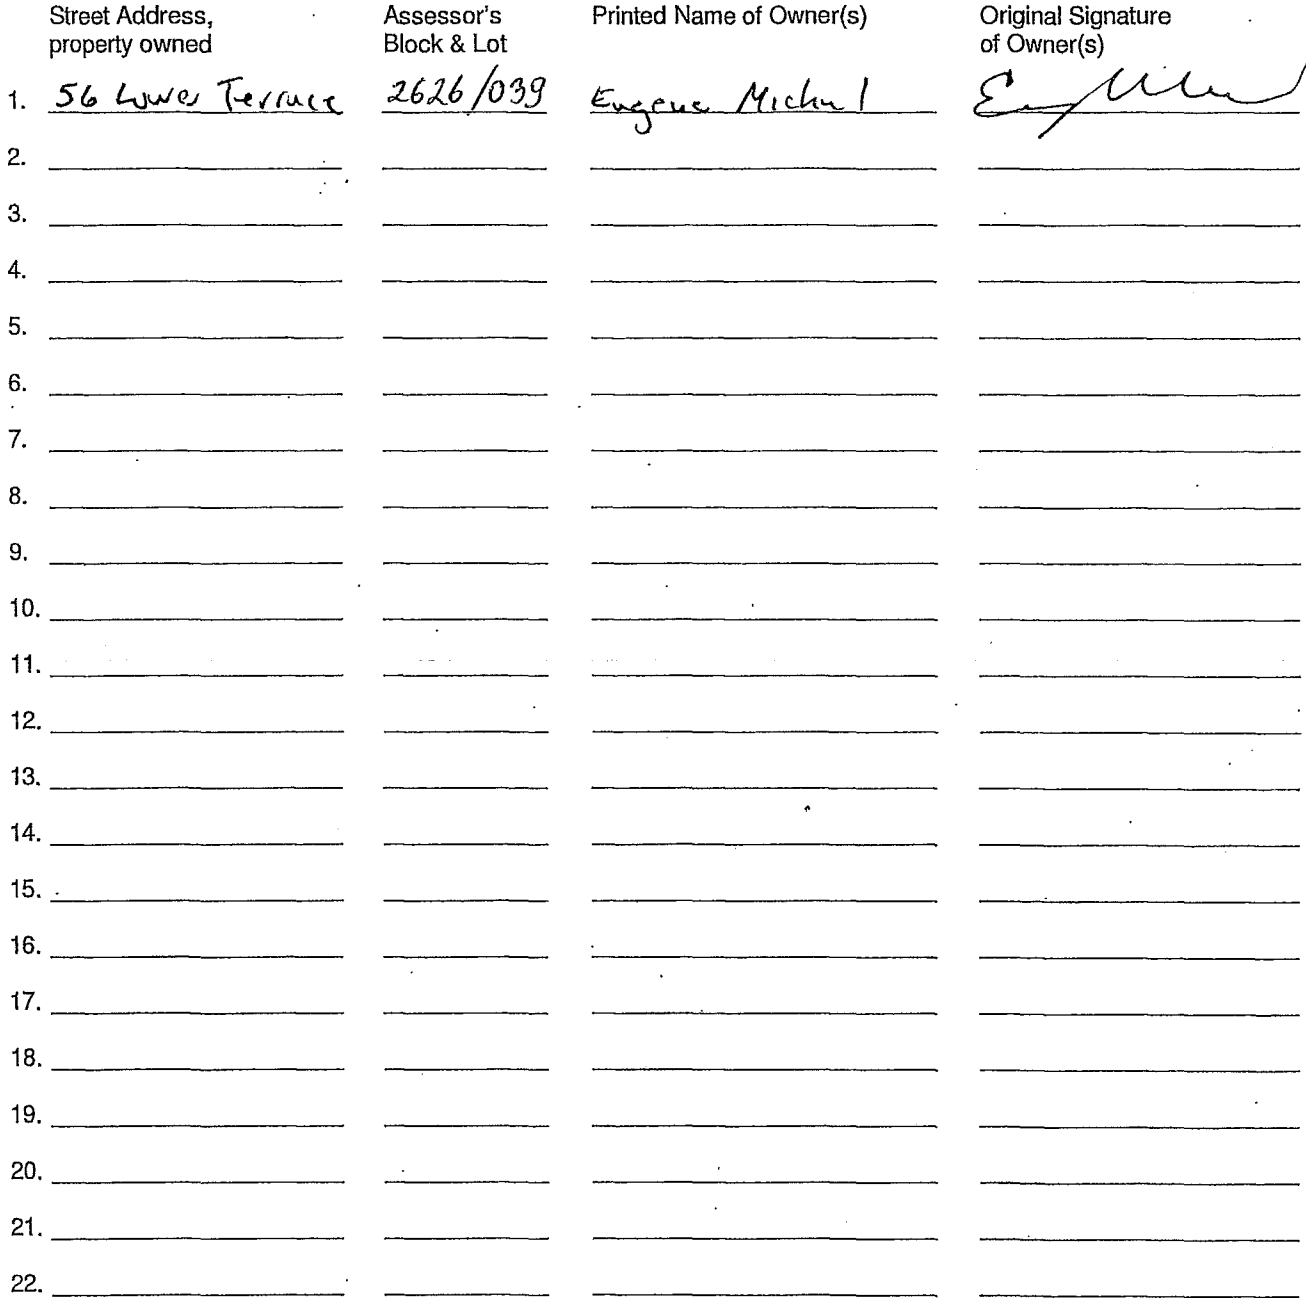 Street Address, property owned Assessor's Block & Lot Printed Name of Owner(s) Original Signature of Owner(s)
1. 56 Lower Terrace 2626/039 Eugene Michael
2.
3.
4.
5.
6.
7.
8.
9.
10.
11.
12.
13.
14.
15.
16.
17.
18.
19.
20.
21.
22.